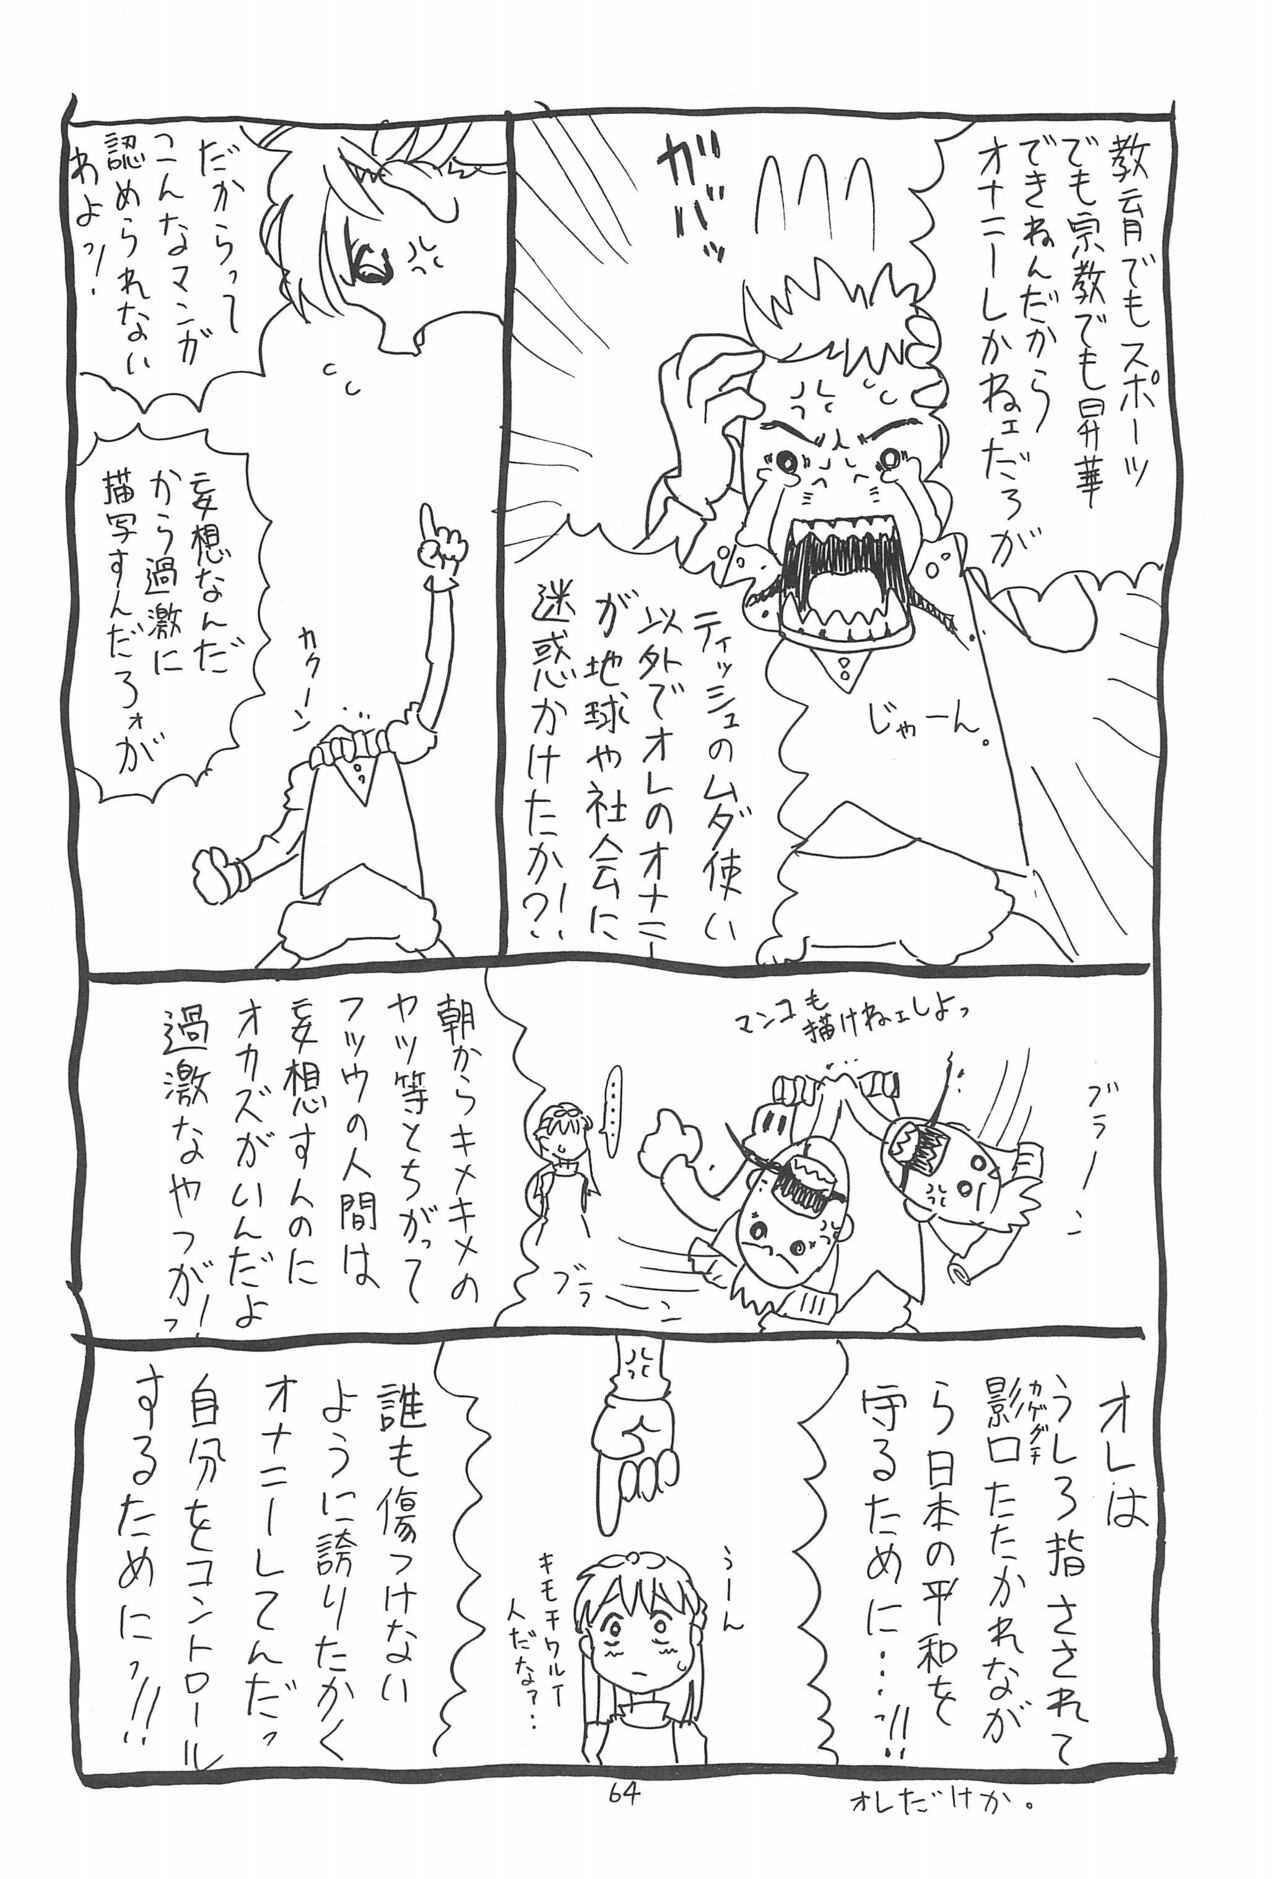 教育でもスポーツ
でも宗教でも昇華
できねんだから
オナニーしかねェだろが
ガバッ
じゃーん。
ティッシュのムダ使い
以外でオレのオナニー
が地球や社会に
迷惑かけたか?!
だからって
こんなマンガ
認められない
わよっ!
妄想なんだ
から過激に
描写すんだろォが
カクーン
マンコも
描けねェしよっ
ブラーン
ブラーン
……
朝からキメキメの
ヤツ等とちがって
フツウの人間は
妄想すんのに
オカズがいんだよ
過激なやつがっ!
オレは
うしろ指さされて
影口たたかれなが
カゲグチ
ら日本の平和を
守るために……っ!!
うーん
キモチワルイ
人だな?..
誰も傷つけない
ように誇りたかく
オナニーしてんだっ
自分をコントロール
するためにっ!!
64
オレだけか。